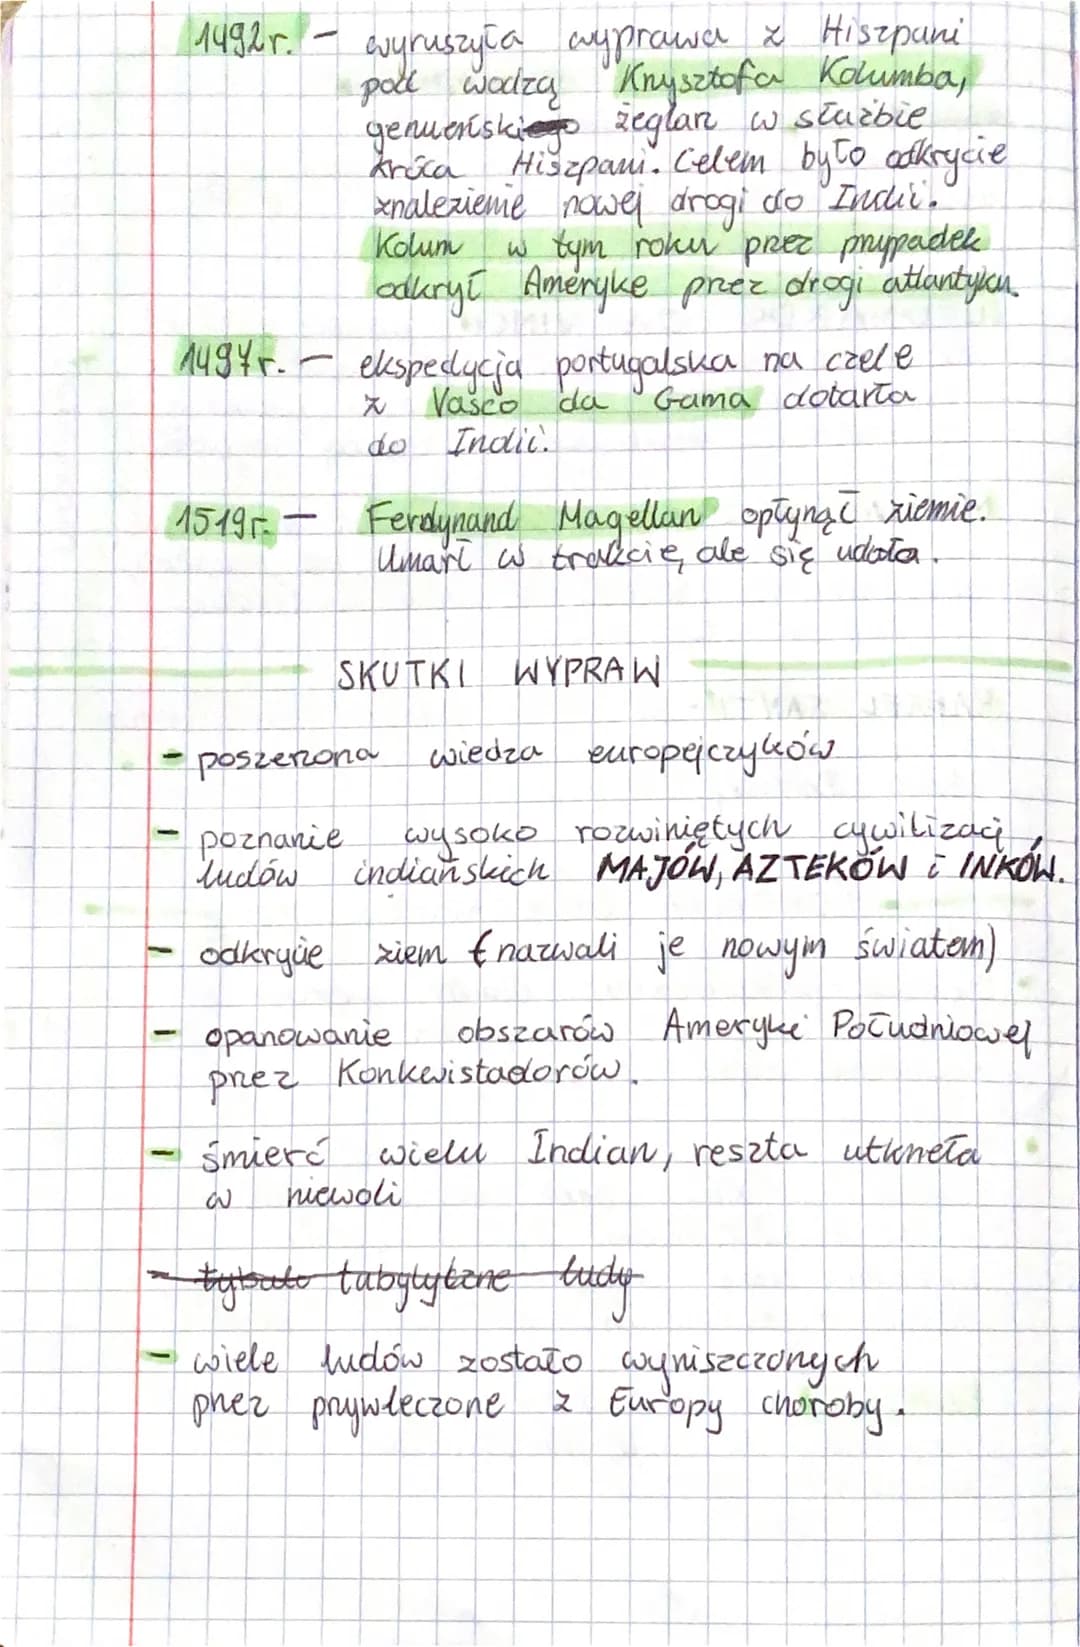 1492r. - wyruszyła wyprawa z Hiszpani
pod wodzą Krzysztofa Kolumba,
genueński żeglarz w służbie
króla Hiszpani. Celem było odkrycie
znalezienie nowej drogi do Indii.
Kolum w tym roku przez przypadek
odkrył Ameryke przez drogi atlantyku
1497r. - ekspedycja portugalska na czele
z Vasco da Gama dotarła
do Indii.
1519r. - Ferdynand Magellan opłynął ziemie.
Umarł w trakcie, ale się udało.
SKUTKI WYPRAW
- poszerzona wiedza europejczyków
- poznanie wysoko rozwiniętych cywilizacji,
ludów indiańskich MAJÓW, AZTEKÓW i INKÓW.
- odkrycie ziem (nazwali je nowym światem)
- opanowanie obszarów Ameryki Południowej
przez Konkwistadorów.
- śmierć wielu Indian, reszta utkneła
w niewoli
- ludy
- wiele ludów zostało wyniszczonych
przez przywleczone z Europy choroby.